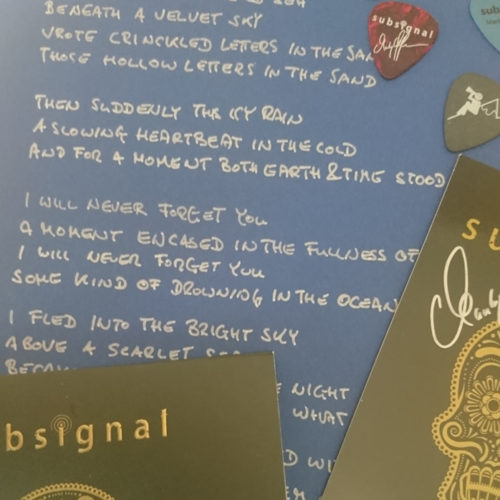 BENEATH A VELVET SKY
WROTE CRINCKLED LETTERS IN THE
THOSE HOLLOW LETTERS IN THE SAND
THEN SUDDENLY THE ICY RAIN
A SLOWING HEARTBEAT IN THE COLD
AND FOR A MOMENT BOTH EARTH & TIME STOOD
I WILL NEVER FORGET YOU
A MOMENT ENCASED IN THE FULLNESS OF
I WILL NEVER FORGET YOU
SOME KIND OF DROWNING IN THE OCEAN
I FLED INTO THE BRIGHT SKY
ABOVE A SCARLET
NIGHT
WHAT
subsignal
sub
bsignal
SU